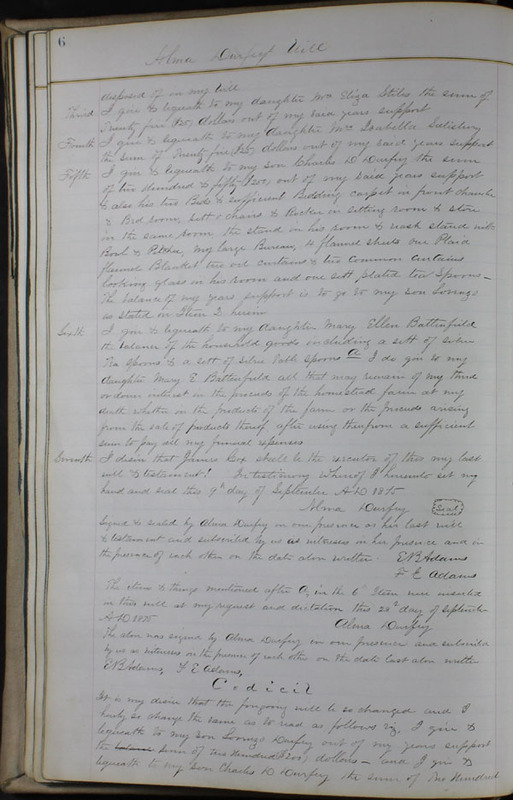 6
Alma Durfey Will
disposed of in my Will
Third I give & bequeath to my daughter Mrs Eliza Stiles the sum of
Twenty five $25 dollars out of my said years support
Fourth I give & bequeath to my daughter Mrs Isabella Salisbury
the sum of Twenty five $25 dollars out of my said years support
Fifth I give & bequeath to my son Charles D Durfey the sum
of two hundred & fifty $250, out of my said years support
& also his two Beds & sufficient Bedding carpet in front chamber
& Bed room, sett 6 chairs & Rocker in sitting room & stove
in the same room, the stand in his room & wash stand with
Bowl & Pitcher, my large Bureau, 4 flannel sheets one Plaid
flannel Blanket two oil curtains & two common curtains
looking glass in his room and one sett plated tea Spoons -
The balance of my years support is to go to my son Lorenzo
as stated on Item 2 herein
Sixth I give & bequeath to my daughter Mary Ellen Battenfield
the balance of the household goods including a sett of silver
Tea spoons & a sett of silver Table spoons a I do give to my
daughter Mary E Battenfield all that may remain of my third
or dower interest in the proceeds of the homestead farm at my
death whether in the products of the farm or the proceeds arising
from the sale of products thereof after using therefrom a sufficient
sum to pay all my funeral expenses
Seventh I desire that James Cox shall be the executor of this my last
will & testament. In testimony whereof I hereunto set my
hand and seal this 9th day of September A D 1875
Alma Durfey Seal
Signed & sealed by Alma Durfey in our presence as her last will
& testament and subscribed by us as witnesses in her presence and in
the presence of each other on the date above written. E B Adams
F E Adams
The items & things mentioned after a, in the 6th Item were inserted
in this will at my request and dictation this 28th day of September
A D 1875 Alma Durfey
The above was signed by Alma Durfey in our presence and subscribed
by us as witnesses in the presence of each other on the date last above written
E B Adams, F E Adams,
Codicil
It is my desire that the foregoing will be so changed and I
hereby so change the same as to read as follows viz, I give &
bequeath to my son Lorenzo Durfey out of my years support
the balance sum of two hundred $200, dollars - and I give &
bequeath to my son Charles D Durfey the sum of One Hundred